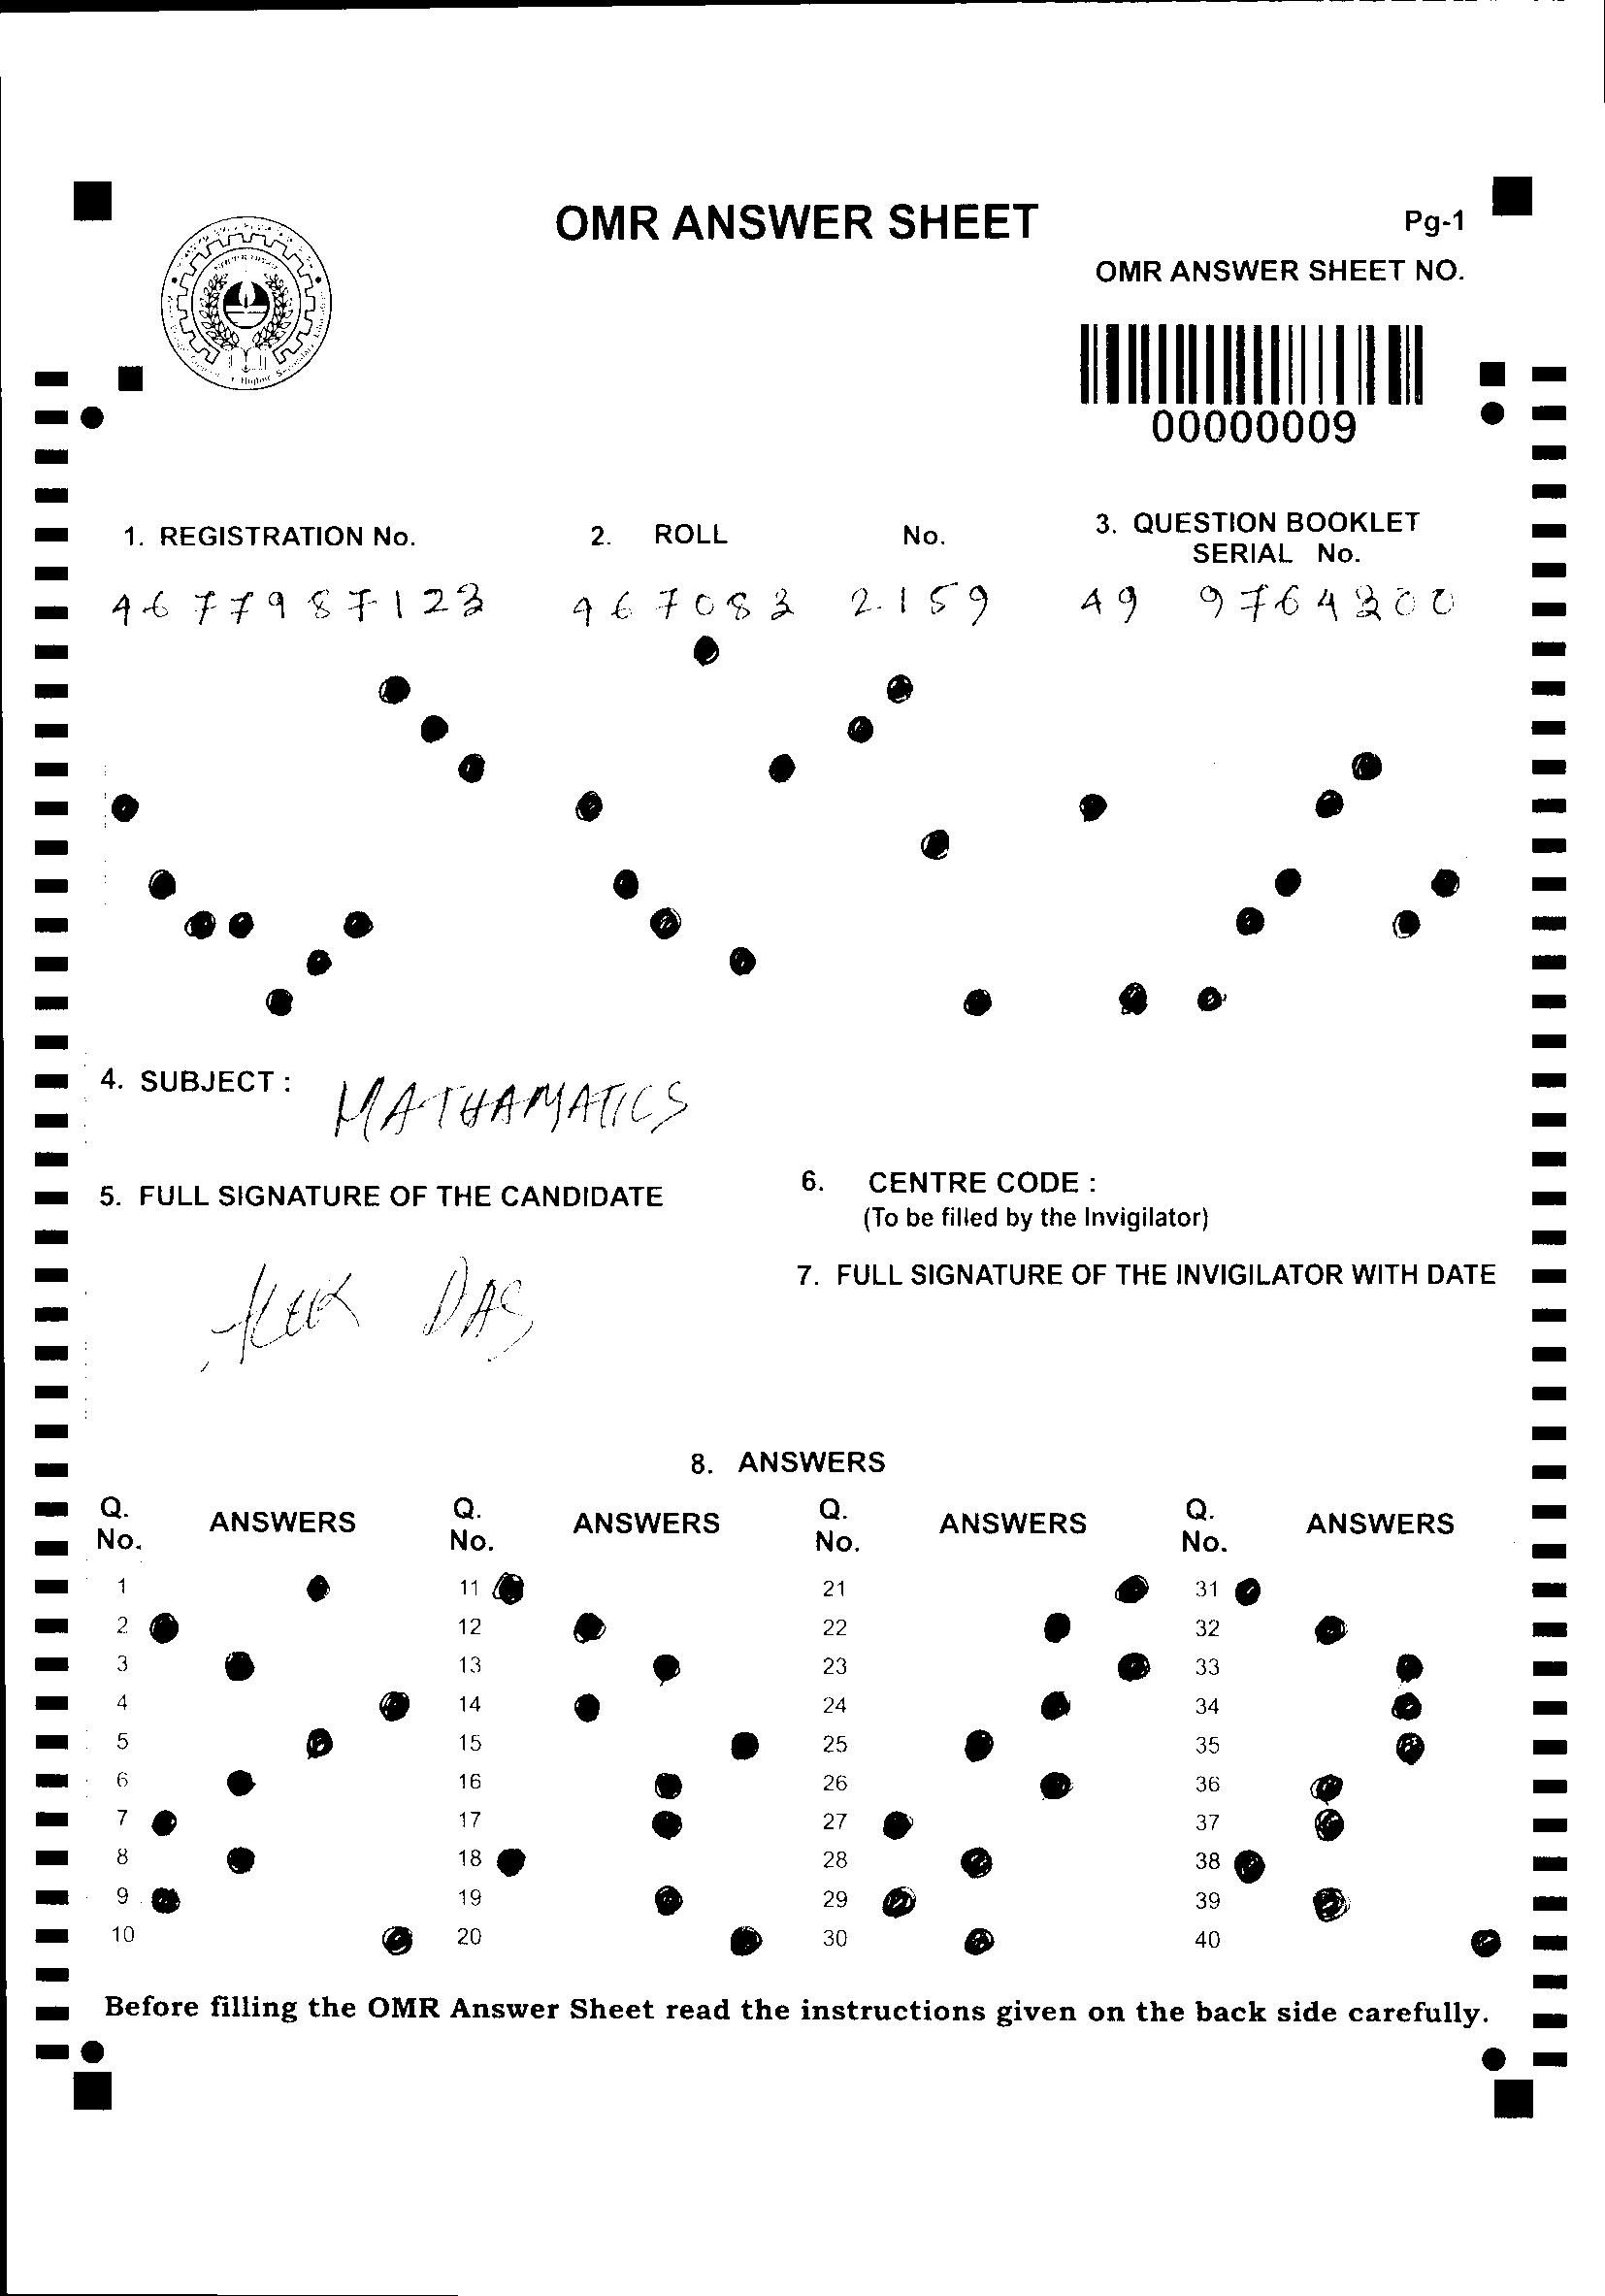 OMR ANSWER SHEET
Pg-1
OMR ANSWER SHEET NO.
00000009
1. REGISTRATION No.
2. ROLL No.
3. QUESTION BOOKLET
SERIAL No.
4677987123
467083 2159
49 9764300
4. SUBJECT :
MATHAMATICS
5. FULL SIGNATURE OF THE CANDIDATE
DAS
6. CENTRE CODE :
(To be filled by the Invigilator)
7. FULL SIGNATURE OF THE INVIGILATOR WITH DATE
8. ANSWERS
Q. No. ANSWERS Q. No. ANSWERS Q. No. ANSWERS Q. No. ANSWERS
1 11 21 31
2 12 22 32
3 13 23 33
4 14 24 34
5 15 25 35
6 16 26 36
7 17 27 37
8 18 28 38
9 19 29 39
10 20 30 40
Before filling the OMR Answer Sheet read the instructions given on the back side carefully.